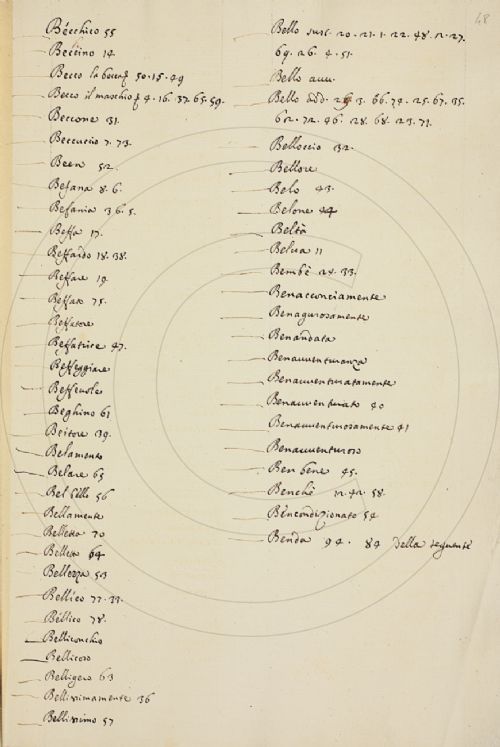 48
Bécchico 55
Beccino 14
Becco la bocca 50.15.49
Becco il maschio 4.16.37.65.59.
Beccone 31.
Beccuccio 7.73.
Been 52.
Befana 8.6.
Befania 36.5.
Beffa 17.
Beffardo 18.38.
Beffare 19
Beffato 75.
Beffatore
Beffatrice 47.
Beffeggiare
Beffevole
Beghino 61
Beitore 39.
Belamento
Belare 65
Bel bello 56
Bellamente
Belletta 70
Belletto 64
Bellezza 53
Bellico 77.33.
Béllico 78.
Belliconchio
Bellicoso
Belligero 63
Bellissimamente 36
Bellissimo 57
Bello sust. 20.21.1.22.48.2.27.
69.26.4.51.
Bello avv.
Bello add. 3.66.74.25.67.35.
62.72.46.28.68.23.71.
Belloccio 32.
Bellore
Belo 43.
Belone 44
Beltà
Belva 11
Bembè 28.33.
Benacconciamente
Benagurosamente
Benandata
Benavventuranza
Benavventuratamente
Benavventurato 40
Benavventurosamente 41
Benavventuroso
Ben bene 45.
Benchè 12.42.58.
Bencondizionato 54
Benda 94. 84 della seguente